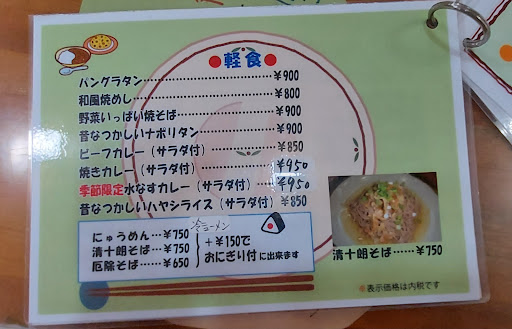 ●軽食●
パングラタン……………………¥900
和風焼めし………………………¥800
野菜いっぱい焼そば……………¥900
昔なつかしいナポリタン………¥900
ビーフカレー（サラダ付）……¥850
焼きカレー（サラダ付）¥950
季節限定水なすカレー（サラダ付）…¥950
昔なつかしいハヤシライス（サラダ付）¥850
冷ラーメン
にゅうめん…¥750
清十朗そば…¥750
厄除そば……¥650
＋¥150で
おにぎり付に出来ます
清十朗そば……¥750
●表示価格は内税です